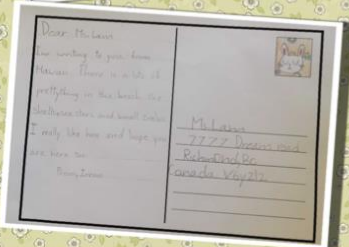 Dear Ms. Laws
I'm writing to you from
Hawaii. There is a lots of
prettything on the beach like
shells, sea stars and small crabs
I really like here and hope you
are here too.
Ms Laws
7777 Dreams road
Richmond, Bc
Canada